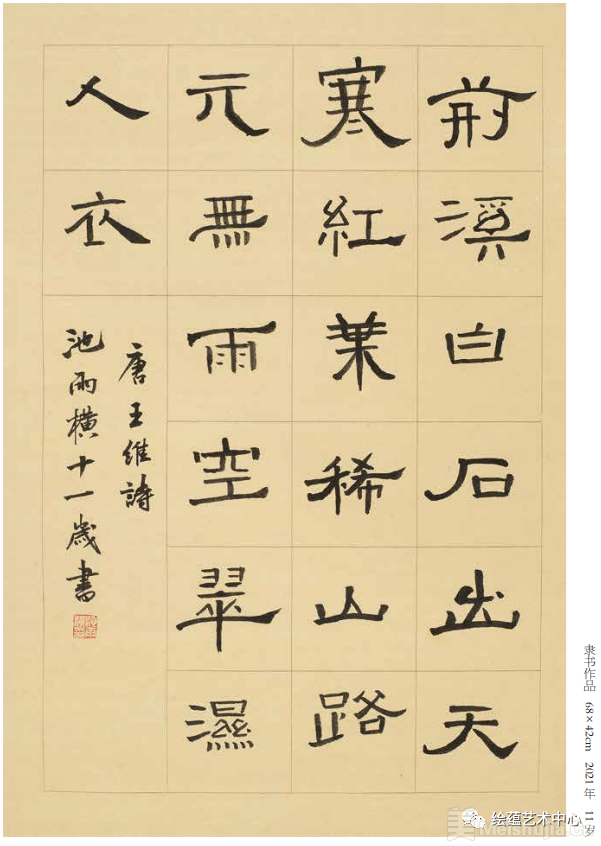 荊溪白石出天
寒紅葉稀山路
元無雨空翠濕
人衣
唐王維詩
池雨橫十一歲書
隶书作品 68×42cm 2021年 11岁
绘蕴艺术中心
美 Meishujia.c